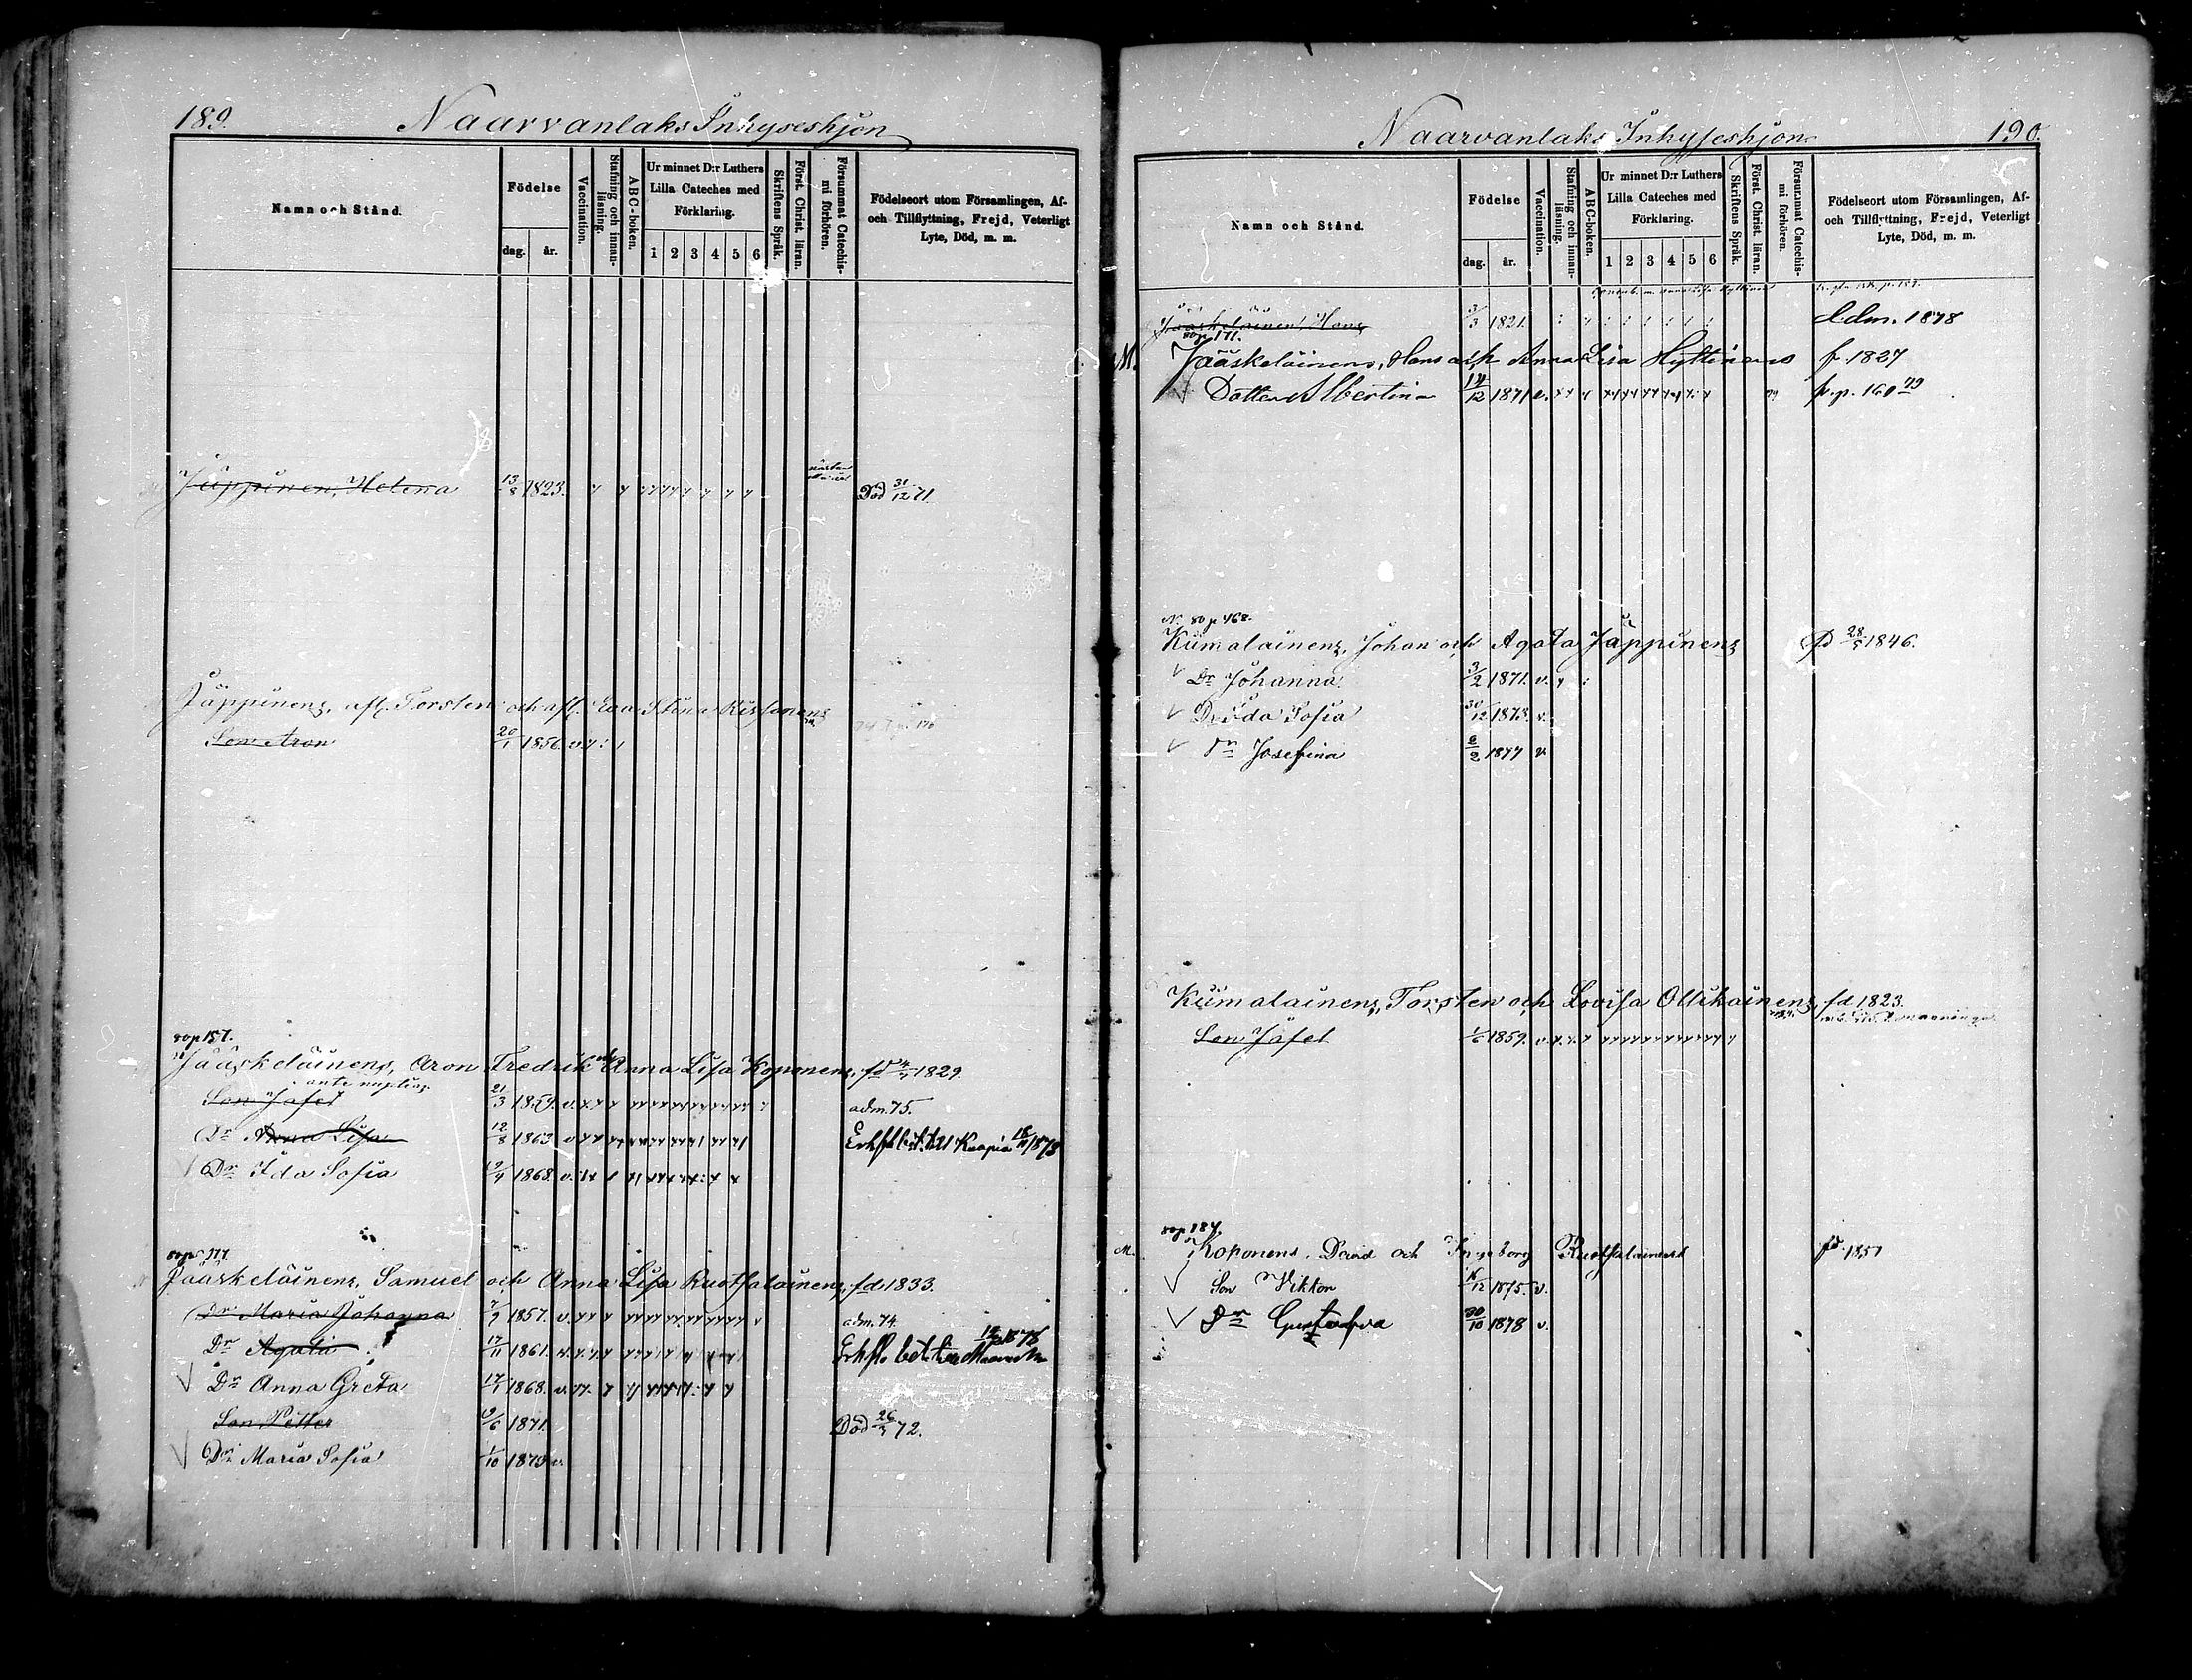 189.
Naarvanlaks Inhyseshjon
Namn och Stånd.
Födelse
dag. år.
Vaccination.
Stafning och innanläsning.
ABC-boken.
Ur minnet D:r Luthers Lilla Cateches med Förklaring.
1 2 3 4 5 6
Skriftens Språk.
Först. Christ. läran.
Försummat Catechismi förhören.
Födelseort utom Församlingen, Af- och Tillflyttning, Frejd, Veterligt Lyte, Död, m. m.
Jäppinen, Helena 13/8 1823. Död 31/12 71.
Jäppinens, afl. Torsten och afl. Eva Stina
Son Aron 20/1 1856.
80 p 157.
Jääskeläinens, Aron Fredrik och Anna Lisa Koponens, fd 1829.
ante nuptias
Son Jafet 21/3 adm. 75.
Dr Anna Lisa 12/8 1863
Dr Ida Sofia 1868.
80 p 177.
Jääskeläinens, Samuel och Anna Lisa Ruotsalainens, fd 1833.
Dr Maria Johanna 1857. adm. 74.
Dr Agata 17/11 1861.
Dr Anna Greta 17/1 1868.
Son Petter 1871. Död 72.
Dr Maria Sofia 1/10 1873
Naarvanlaks Inhyseshjon.
190.
Namn och Stånd.
Födelse
dag. år.
Vaccination.
Stafning och innanläsning.
ABC-boken.
Ur minnet D:r Luthers Lilla Cateches med Förklaring.
1 2 3 4 5 6
Skriftens Språk.
Först. Christ. läran.
Försummat Catechismi förhören.
Födelseort utom Församlingen, Af- och Tillflyttning, Frejd, Veterligt Lyte, Död, m. m.
Jääskeläinen, Hans 3/3 1821.
80 p 171.
M. Jääskeläinens, Hans och Anna Lisa Hyttinens f. 1827
Dotter Albertina 1871
80 p 468.
Kiimalainens, Johan och Agata Jäppinens fd 28/5 1846.
Dr Johanna 3/2 1871. v.
Dr Ida Sofia 30/12 1873. v.
Dr Josefina 1877 v
Kiimalainens, Torsten och Lovisa Ollikainens, fd 1823.
Son Jafet 1/6 1859.
80 p 184.
M. Koponens. David och Ingeborg Ruotsalainens fd. 1851
Son Viktor 1875. v.
Dr Gustafva 30/10 1878 v.